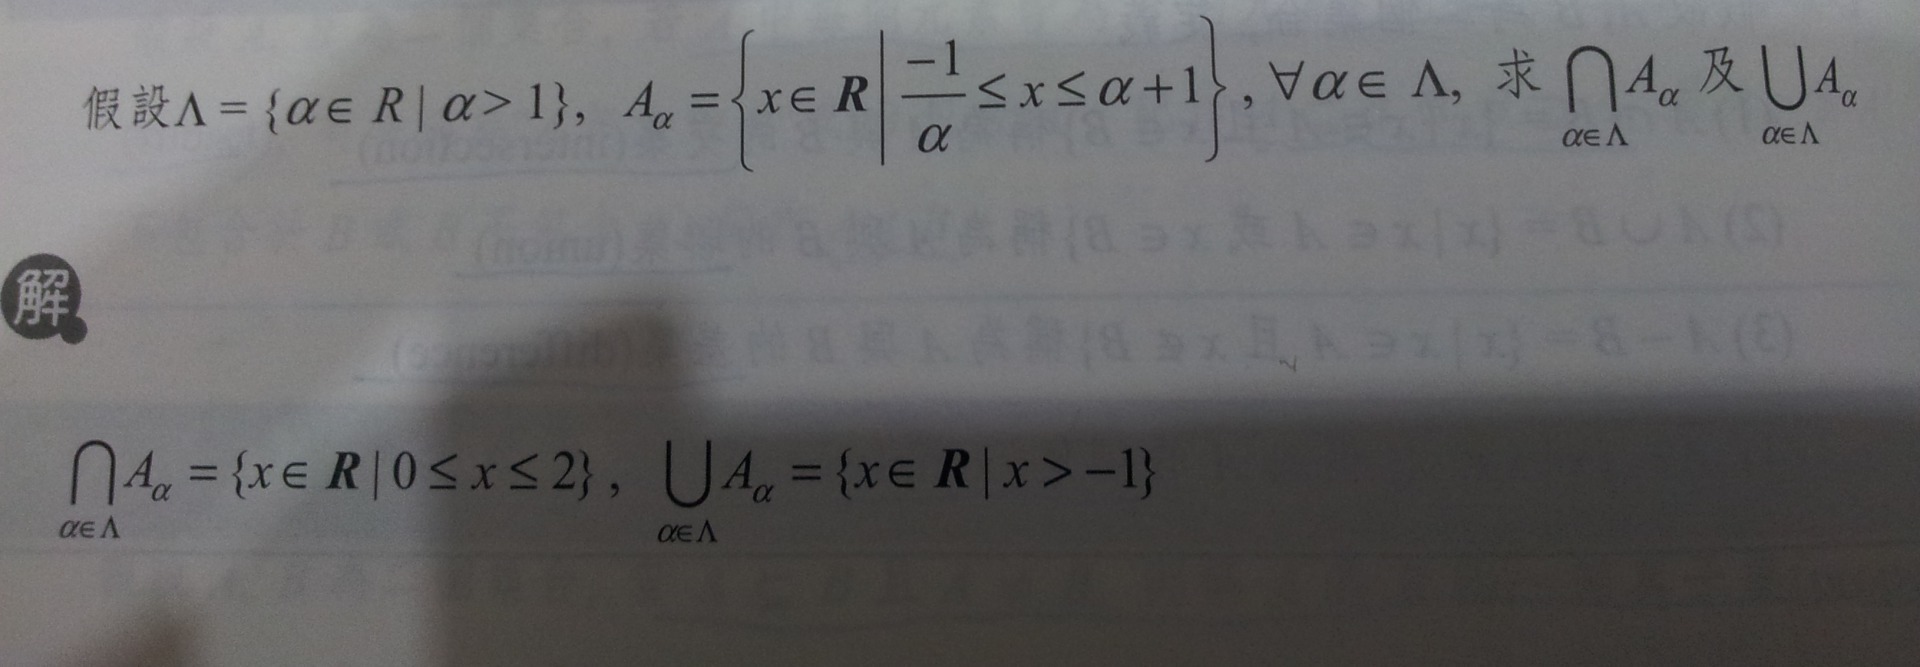 假設Λ = {α∈ R | α> 1}, Aα = {x∈ R | −1/α ≤ x ≤ α+1}, ∀α∈ Λ, 求 ⋂α∈Λ Aα 及 ⋃α∈Λ Aα
解
⋂α∈Λ Aα = {x∈ R | 0 ≤ x ≤ 2}, ⋃α∈Λ Aα = {x∈ R | x > −1}